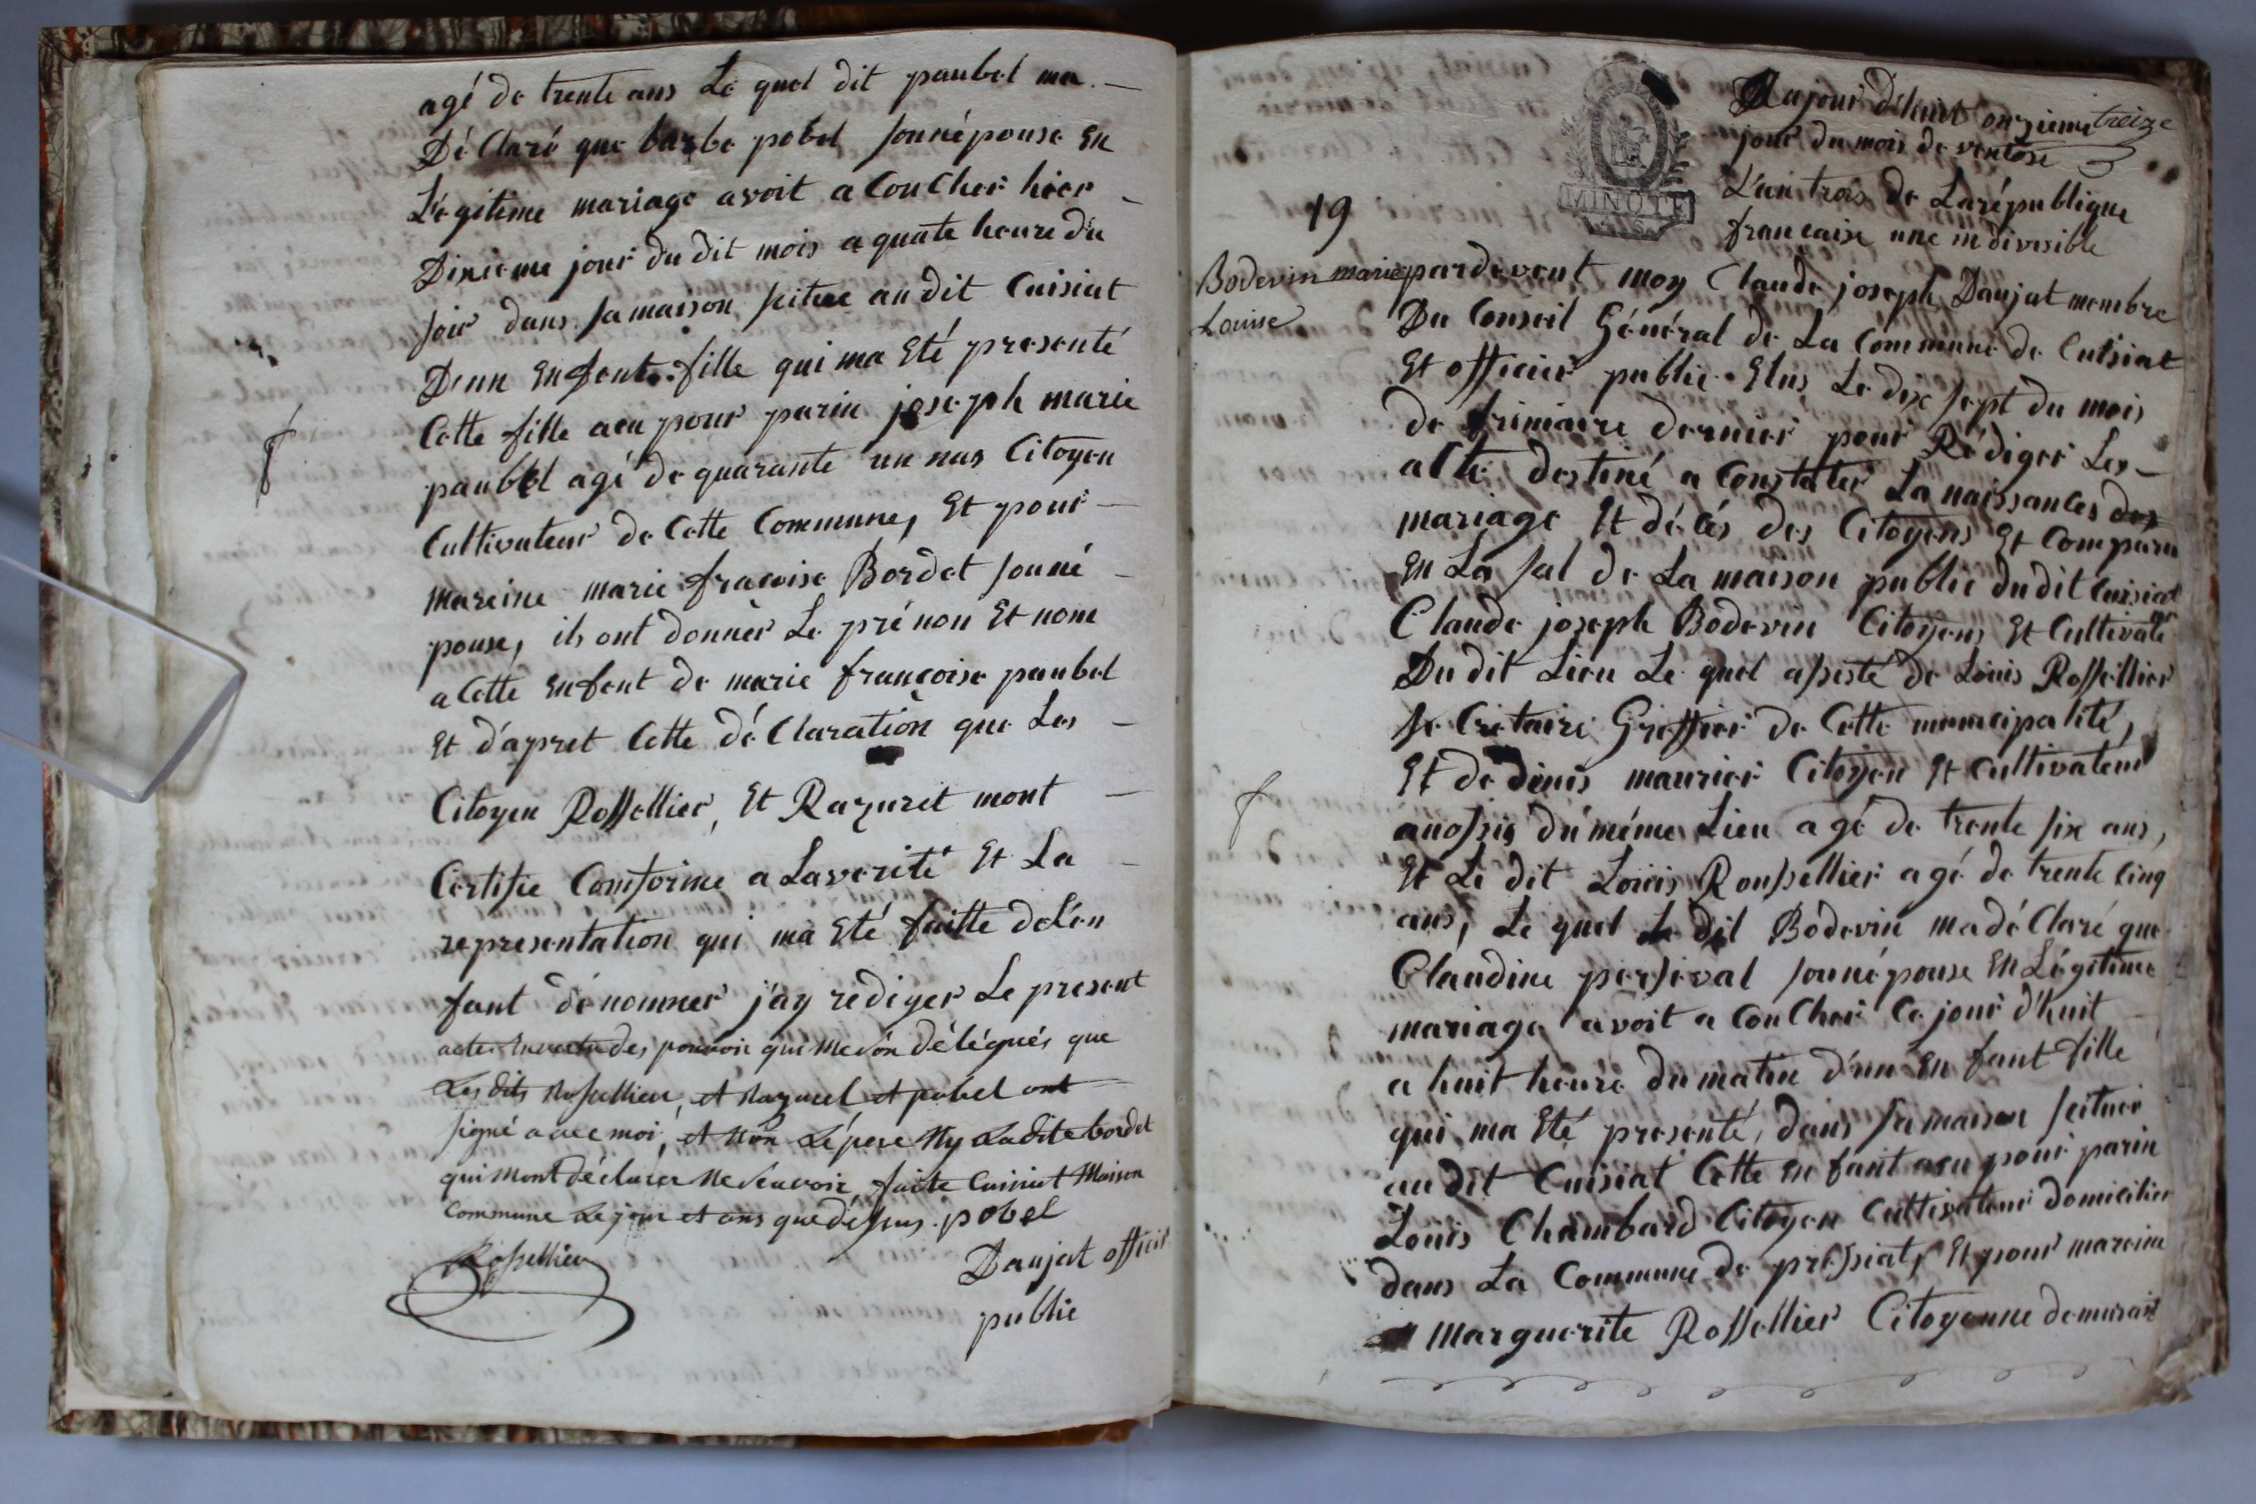 agé de trente ans Le quel dit paubel ma. —
Dé Claré que barbe pobel sonnépouse En
Légitime mariage avoit a Coucher hier —
Dixieme jour du dit mois a quate heure du
soir dans sa maison scitue au dit Cuisiat
Deun Enfent fille qui ma Eté presenté
Cette fille aeu pour parin joseph marie
paubel agé de quarante un nas Citoyen
Cultivateur de Cette Commune, Et pour —
mareine marie fracoise Bordet sonné —
pouse, ils ont donnèr Le prénon Et nome
a Cette Enfent de marie françoise paubel
Et d'apret Cette déClaration que Les —
Citoyen Rossellier, Et Razuret mont —
Certifie Comforme a Laverité Et La —
representation qui ma Eté faitte deLen
fant dénommer j'ay rediger Le present
acte Envertu des pouvoir qui meson délégués que
Les dits Rossellier, et Razurel et pobel ont
signé avec moi, et non Lépere Ny Ladite bordet
qui mont déclarer Ne Scavoir, faite Cuisiat Maison
Commune Le jour et ans que déssus. pobel
Rossellier
Daujat officié
public
Aujour d'huit onzieme treize
jour du mois de ventose
L'an trois de Larépublique
francaise une indivisible
MINUTE
19
Bodevin marie
Louise
pardevent moy Claude joseph Daujat membre
Du Conseil Général de La Commune de Cuisiat
Et officier public Elus Le dix sept du mois
de frimaire dernier pour Rédiger Les —
acte destiné a Constater La naissances des
mariage Et décés des Citoyens Et Comparu
En La sal de La maison public dudit Cuisiat
Claude joseph Bodevin Citoyens Et Cultivateur
Du dit Lieu Le quel assisté de Louis Rossellier
se Cretaire Greffier de Cette municipalité,
Et de denis maurier Citoyen Et Cultivateur
anossis du méme Lieu agé de trente six ans,
Et Le dit Louis Roussellier agé de trente cinq
ans, Le quel Le dit Bodevin ma déClaré que
Claudine perseval sonnépouse En Légitime
mariage avoit a Coucher Ce jour d'huit
a huit heure du matin d'un En fant fille
qui ma Eté presenté, dans sa maison scituer
au dit Cuisiat Cette Enfant aeu pour parin
Louis Chambard Citoyen Cultivateur domicilier
dans La Commune de pressiat, Et pour mareine
Marguerite Rossellier Citoyenne demurait